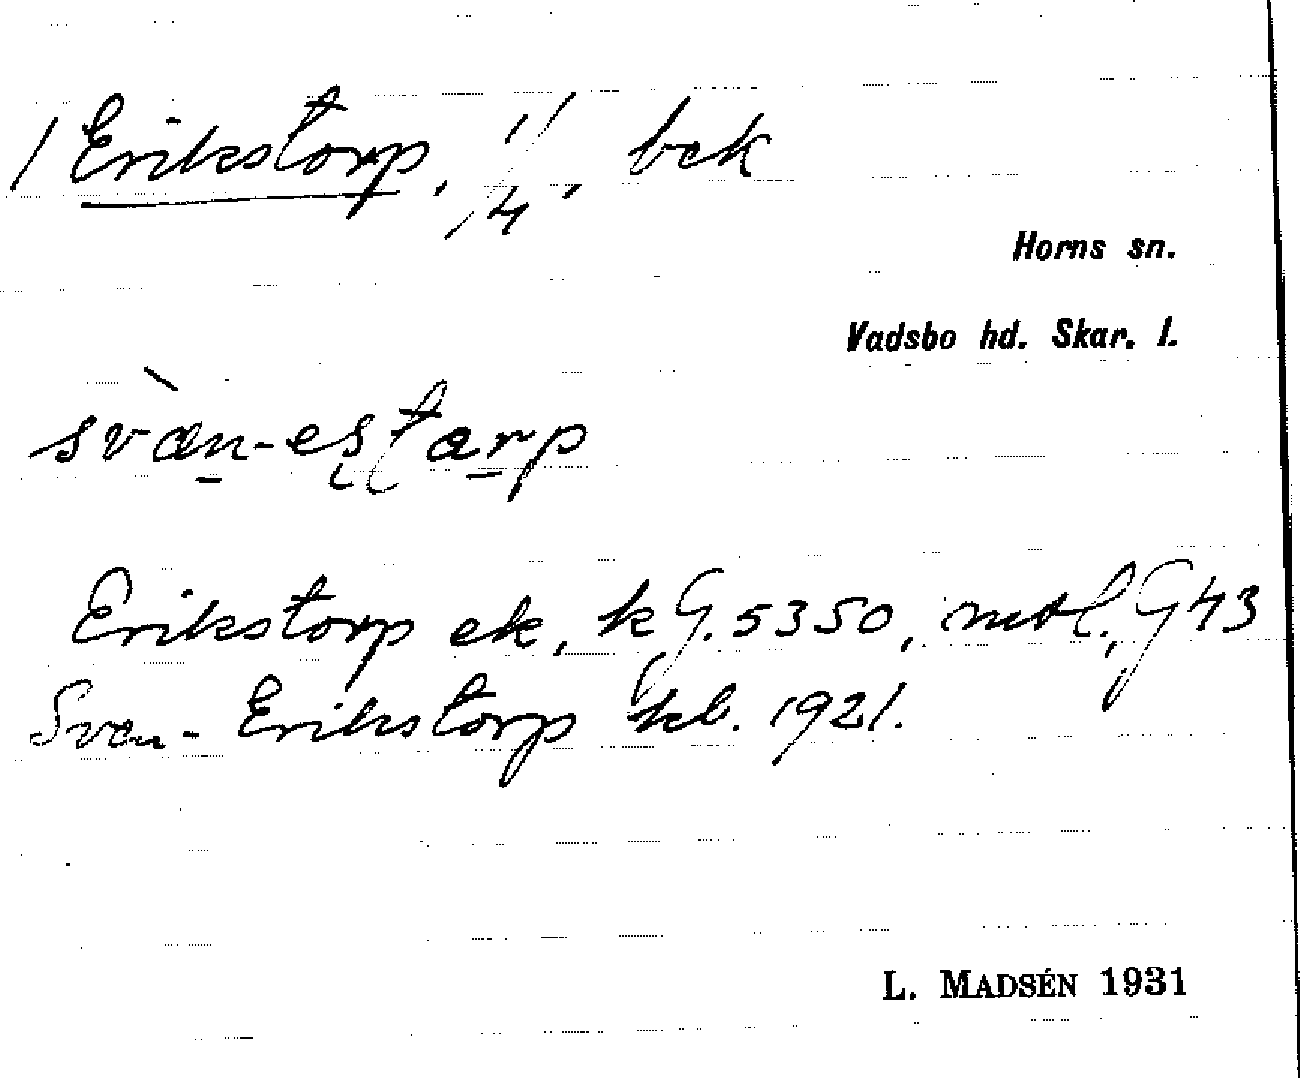 / Erikstorp, 1/4, bek
Horns sn.
Vadsbo hd. Skar. l.
svæ̀n-eştarp
Erikstorp ek, k G. 5350, mtl. G 43
Sven-Erikstorp kb. 1921.
L. MADSÉN 1931